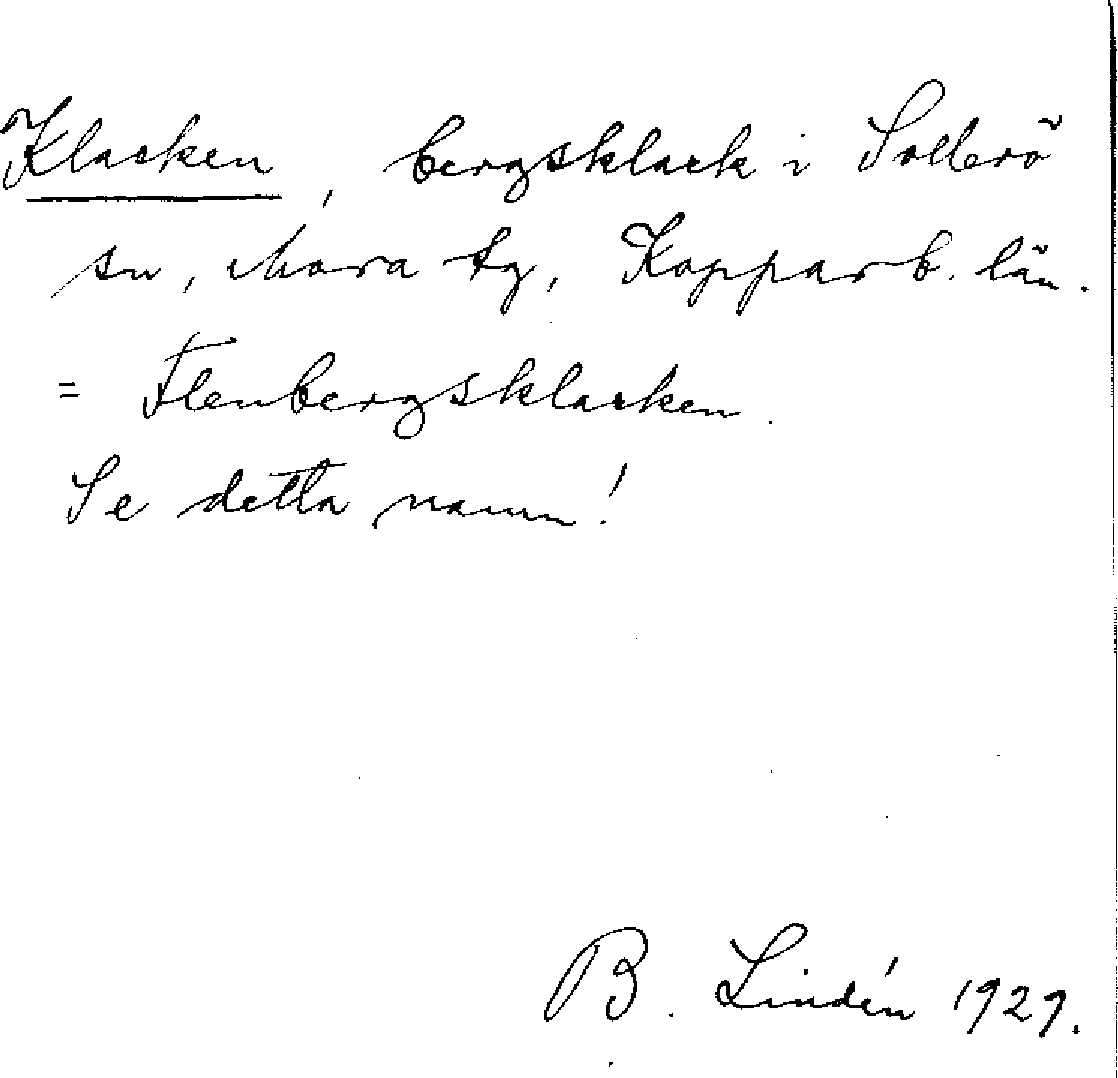 Klacken, bergsklack i Sollerö
sn, Mora tg, Kopparb. län.
= Flenbergsklacken.
Se detta namn!
B. Lindén 1929.